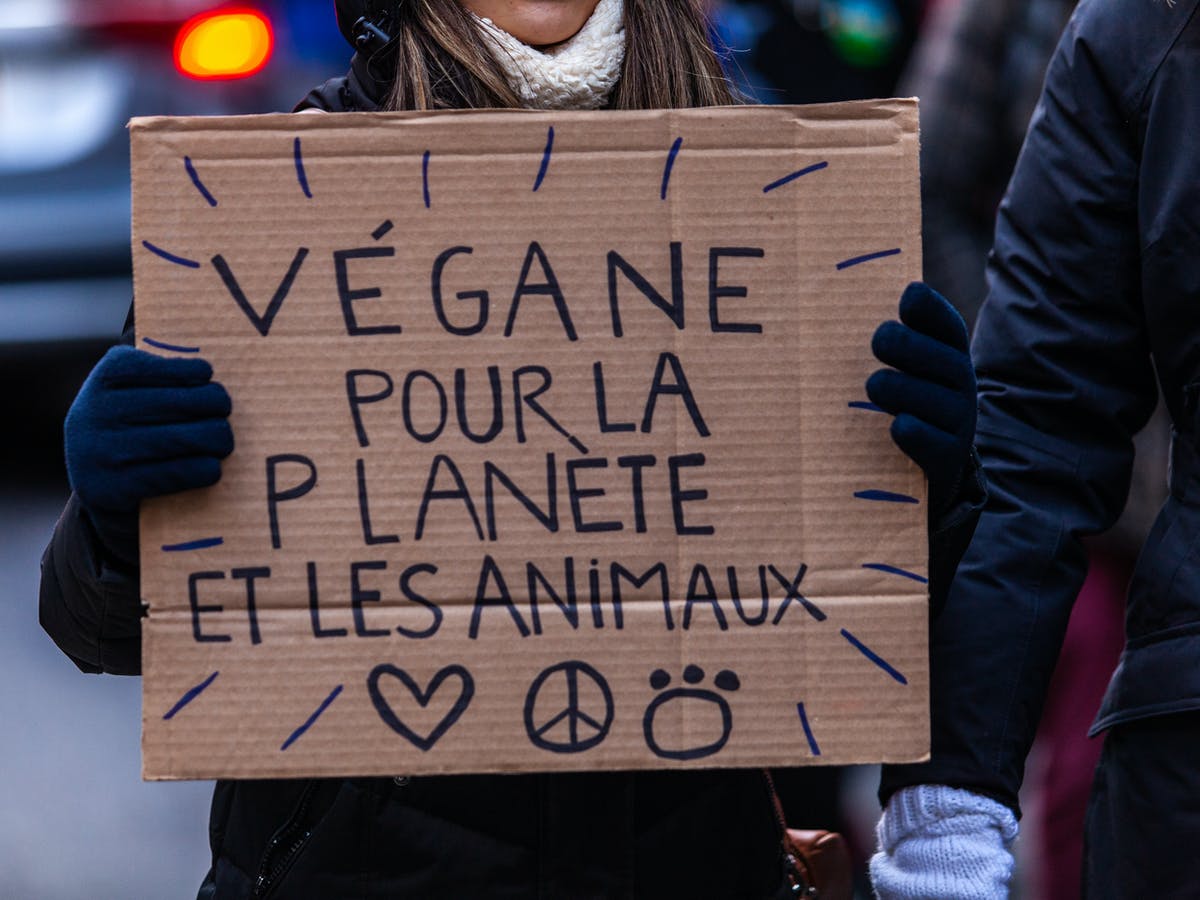 VÉGANE
POUR LA
PLANÈTE
ET LES ANiMAUX